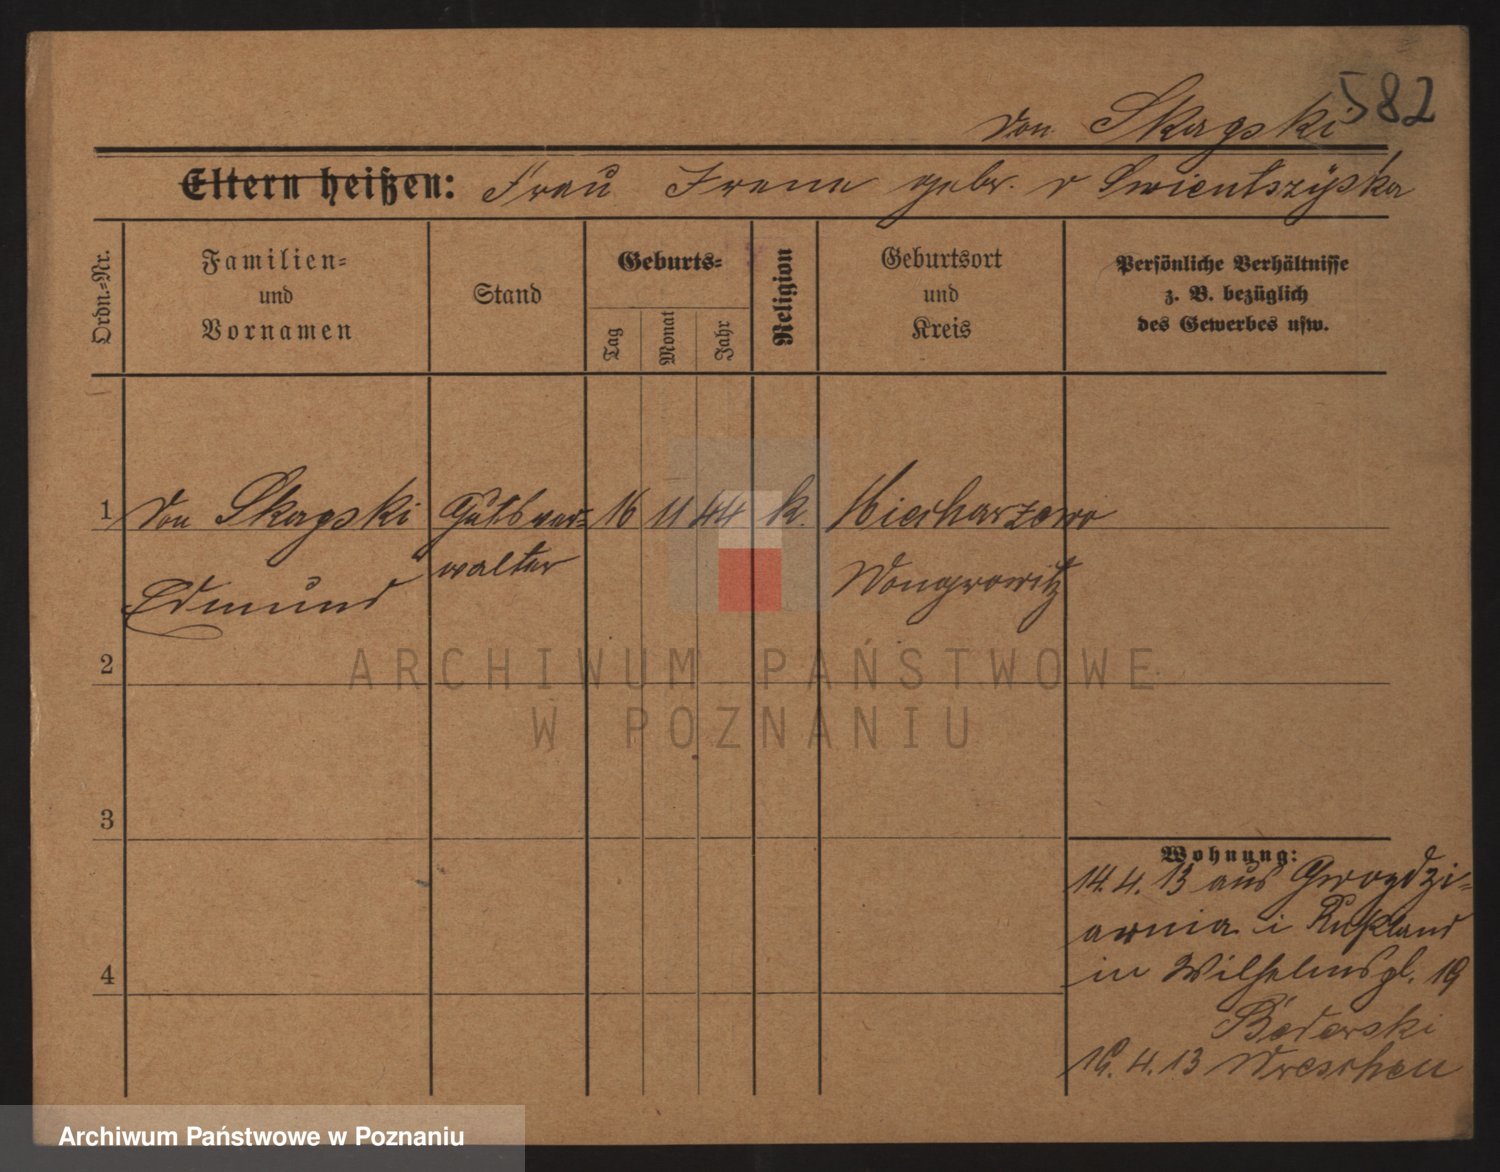 582
von Skagski
Eltern heißen: Frau Irena gebr. v Swientszyska
Ordn.-Nr.
Familien-
und
Vornamen
Stand
Geburts-
Tag
Monat
Jahr
Religion
Geburtsort
und
Kreis
Persönliche Verhältnisse
z. B. bezüglich
des Gewerbes usw.
1 von Skagski Gutsver- 16 11 44 k.
Edmund walter Wongrowitz
2
3
4
Wohnung:
14.4.13 aus Gwozdzi-
arnia i Rußland
in Wilhelmspl. 19
Bederski
16.4.13 Wreschen
ARCHIWUM PAŃSTWOWE
W POZNANIU
Archiwum Państwowe w Poznaniu